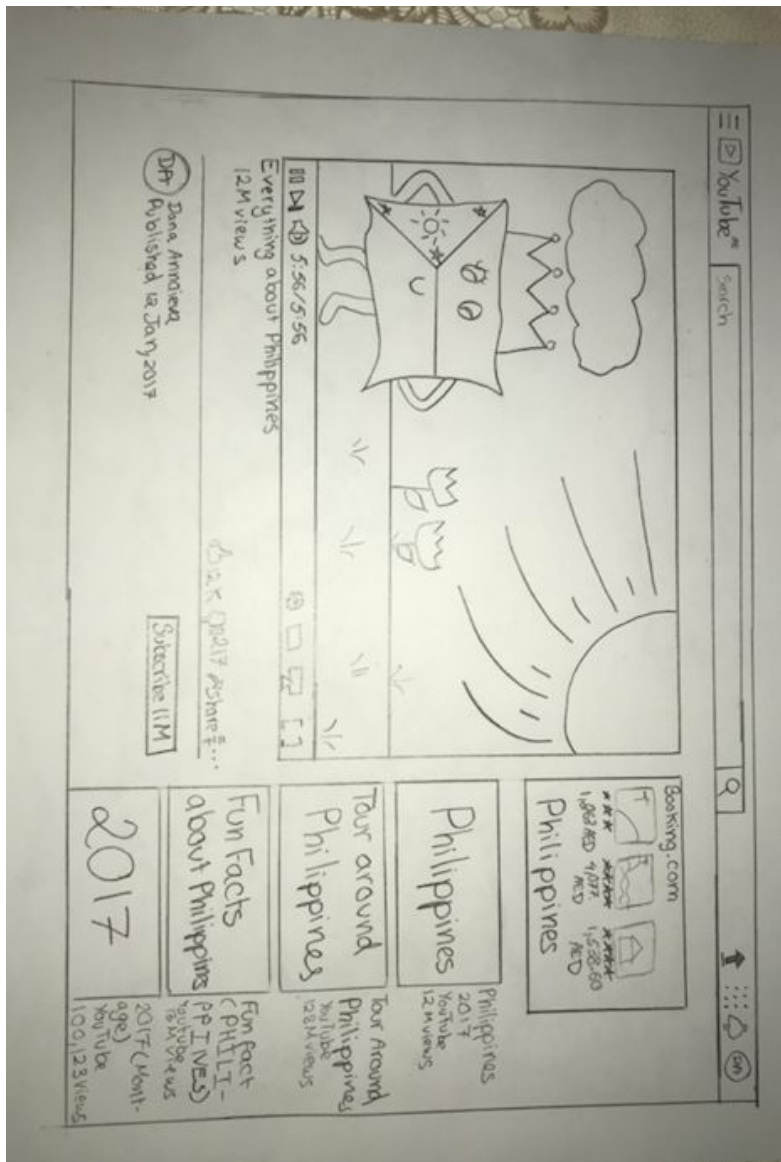 YouTube AE
Search
5:56/5:56
Everything about Philippines
12M views
12K 217 share ...
DA
Dana Annaieva
Published 12 Jan, 2017
Subscribe 11M
Booking.com
1,5 28.60
AED
Philippines
Philippines
Philippines
2017
YouTube
12M views
Tour around
Philippines
Tour Around
Philippines
YouTube
128M views
Fun Facts
about Philippines
Fun fact
(PHILI-
PPINES)
Youtube
18M views
2017
2017 (Mont-
age)
YouTube
100,123 views